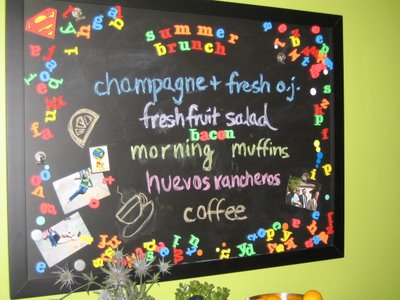 summer
brunch
champagne + fresh o.j.
fresh fruit salad
bacon
morning muffins
huevos rancheros
coffee